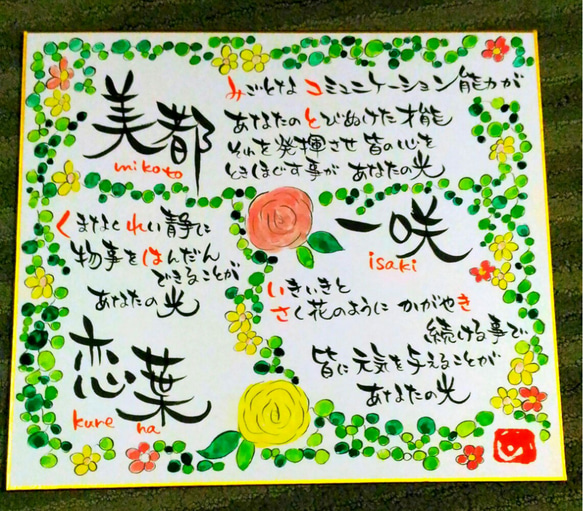 美都
mikoto
みごとな コミュニケーション能力が
あなたの とびぬけた才能
それを発揮させ 皆の心を
ときほぐす事が あなたの光
一咲
isaki
いきいきと
さく花のように かがやき
続ける事で
皆に元気を与えることが
あなたの光
くまなく れい静に
物事をはんだん
できることが
あなたの光
恋葉
kureha